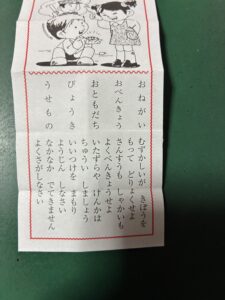 おねがい むずかしいが きぼうを
もって どりょくせよ
おべんきょう さんすうも しゃかいも
よくべんきょうせよ
おともだち いたずらや けんかは
ちゅうい しましょう
びょうき いいつけを まもり
ようじん しなさい
うせもの なかなか でてきません
よくさがしなさい